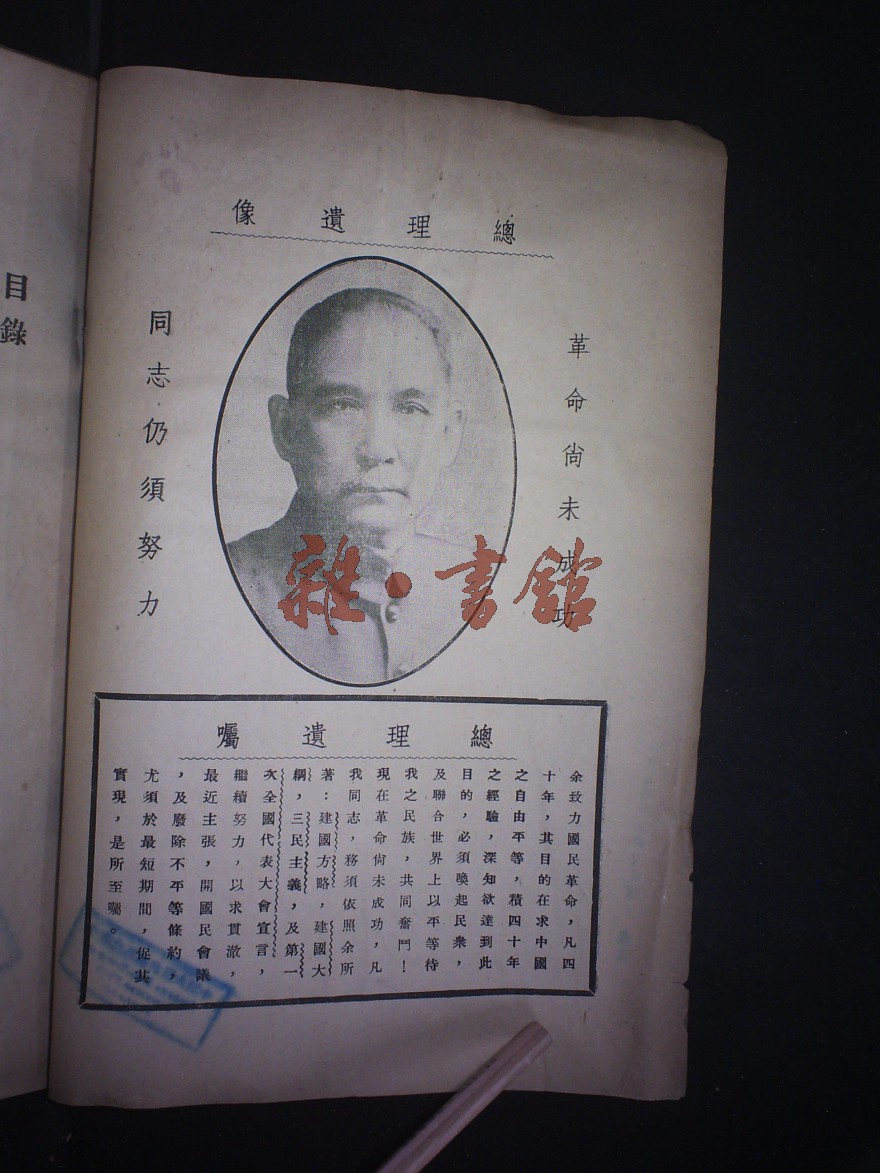 總理遺像
革命尙未成功
同志仍須努力
總理遺囑
余致力國民革命，凡四
十年，其目的在求中國
之自由平等，積四十年
之經驗，深知欲達到此
目的，必須喚起民衆，
及聯合世界上以平等待
我之民族，共同奮鬥！
現在革命尙未成功，凡
我同志，務須依照余所
著：建國方略，建國大
綱，三民主義，及第一
次全國代表大會宣言，
繼續努力，以求貫澈，
最近主張，開國民會議
，及廢除不平等條約，
尤須於最短期間，促其
實現，是所至囑。
目錄
雜·書館